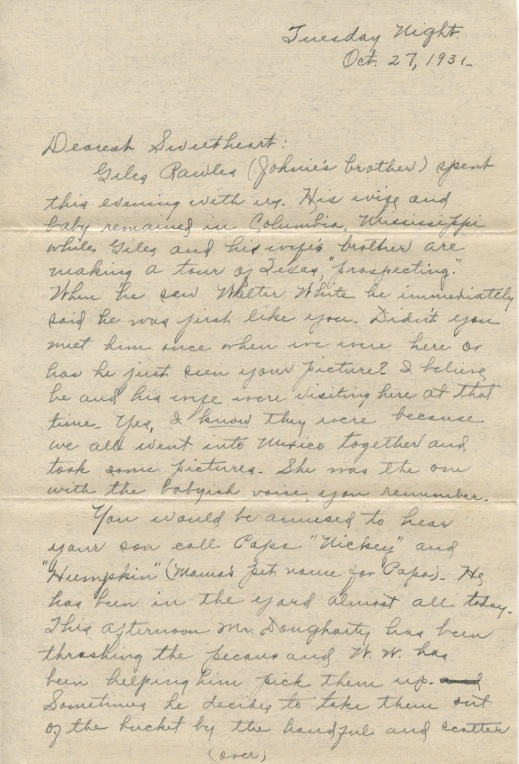 Tuesday Night.
Oct. 27, 1931.
Dearest Sweetheart:
Giles Rawles (Johnie's brother) spent
this evening with us. His wife and
baby remained in Columbia, Mississippi
while Giles and his wife's brother are
making a tour of Texas, "prospecting."
When he saw Walter White he immediately
said he was just like you. Didn't you
meet him once when we were here or
has he just seen your picture? I believe
he and his wife were visiting here at that
time. Yes, I know they were because
we all went into Mexico together and
took some pictures. She was the one
with the babyish voice, you remember.
You would be amused to hear
your son call Papa "Nickey" and
"Humpkin" (Mama's pet name for Papa). He
has been in the yard almost all today.
This afternoon Mr. Dougharty has been
thrashing the pecans and W. W. has
been helping him pick them up.
Sometimes he decides to take them out
of the bucket by the handful and scatter
(over)